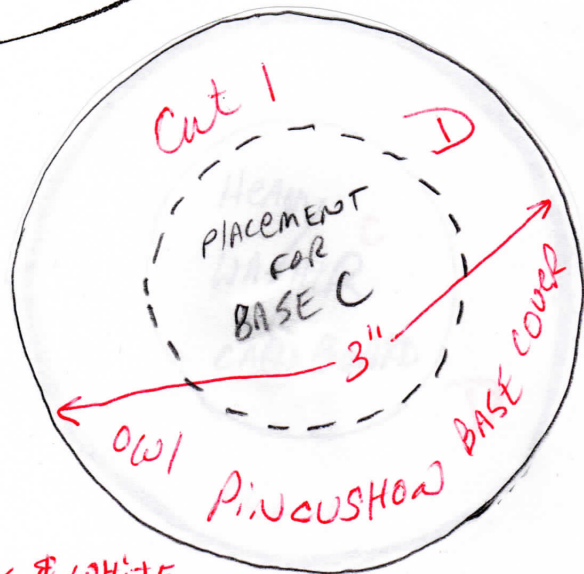 Cut 1
D
PLACEMENT
FOR
BASE C
3"
OWl PiNCUSHON BASE COVER
& WHiTE